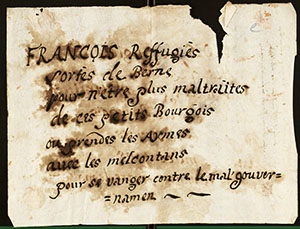 FRANÇOIS Reffugiés
sortes de Berne
pour n'etre plus maltraites
de ces petits Bourgois
ou prendes les Armes
avec les melcontans
pour se vanger contre le mal gouver=
=namen